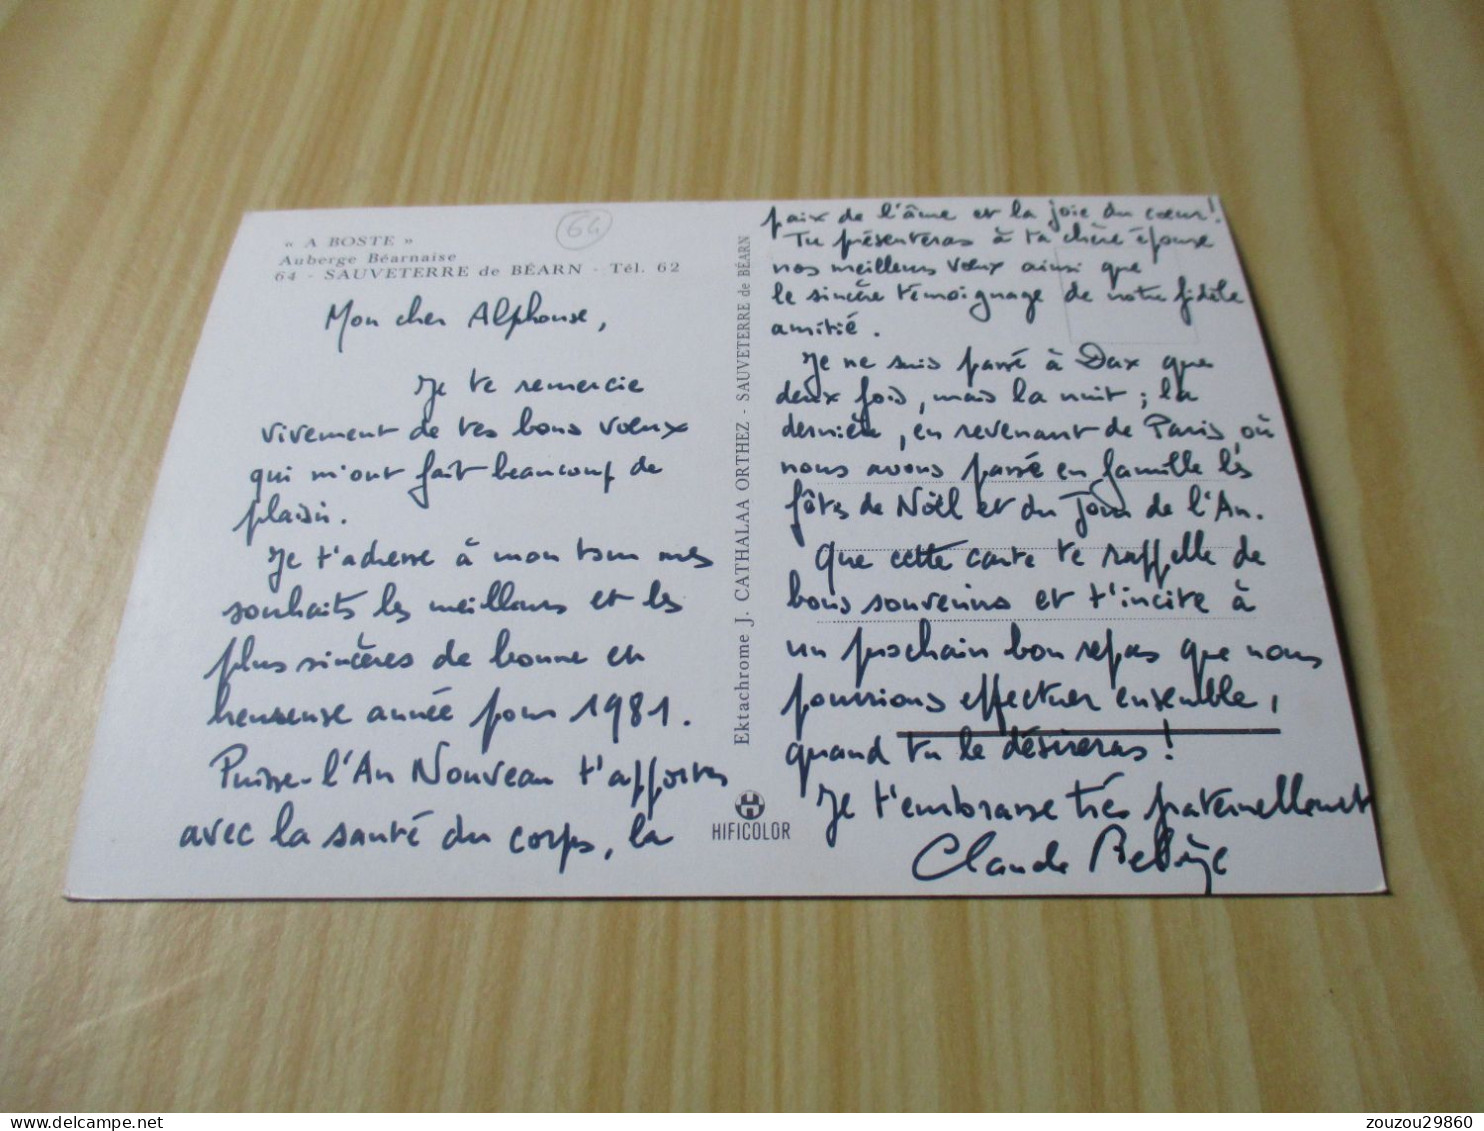 « A BOSTE »
Auberge Béarnaise
64 - SAUVETERRE de BÉARN - Tél. 62
64
Mon cher Alphonse,
Je te remercie
vivement de tes bons voeux
qui m'ont fait beaucoup de
plaisir.
Je t'adresse à mon tour mes
souhaits les meilleurs et les
plus sincères de bonne et
heureuse année pour 1981.
Puisse-l'An Nouveau t'apporter
avec la santé du corps, la
Ektachrome J. CATHALAA ORTHEZ - SAUVETERRE de BÉARN
HIFICOLOR
paix de l'âme et la joie du coeur!
Tu présenteras à ta chère épouse
nos meilleurs voeux ainsi que
le sincère témoignage de notre fidèle
amitié.
Je ne suis passé à Dax que
deux fois, mais la nuit ; la
dernière, en revenant de Paris, où
nous avons passé en famille les
fêtes de Noël et du Jour de l'An.
Que cette carte te rappelle de
bons souvenirs et t'incite à
un prochain bon repas que nous
pourrions effectuer ensemble,
quand tu le désireras!
Je t'embrasse très fraternellement
Claude
zouzou29860